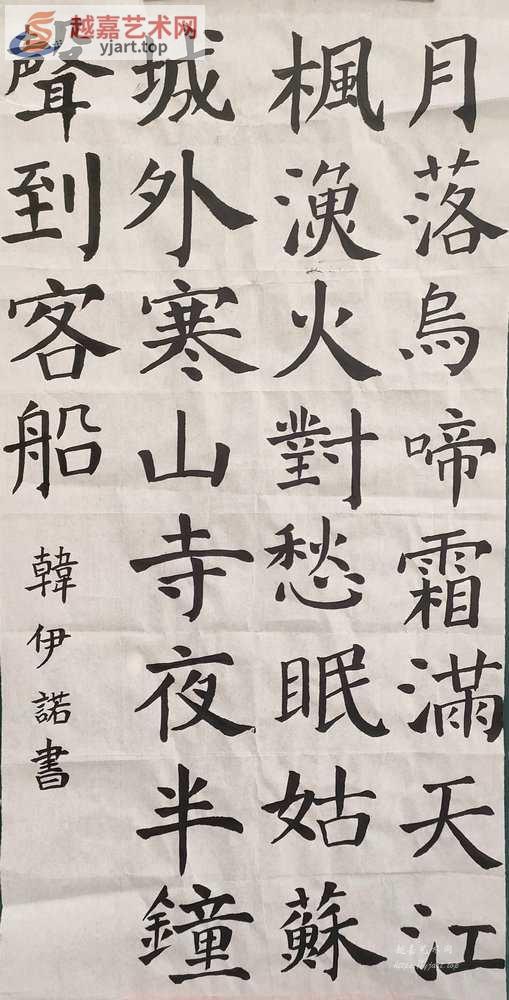 月落烏啼霜滿天江
楓漁火對愁眠姑蘇
城外寒山寺夜半鐘
聲到客船
韓伊諾書
越嘉艺术网
yjart.top
越嘉艺术网